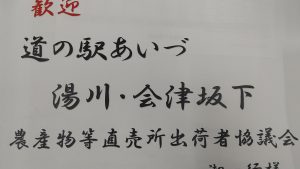 歓迎
道の駅あいづ
湯川・会津坂下
農産物等直売所出荷者協議会